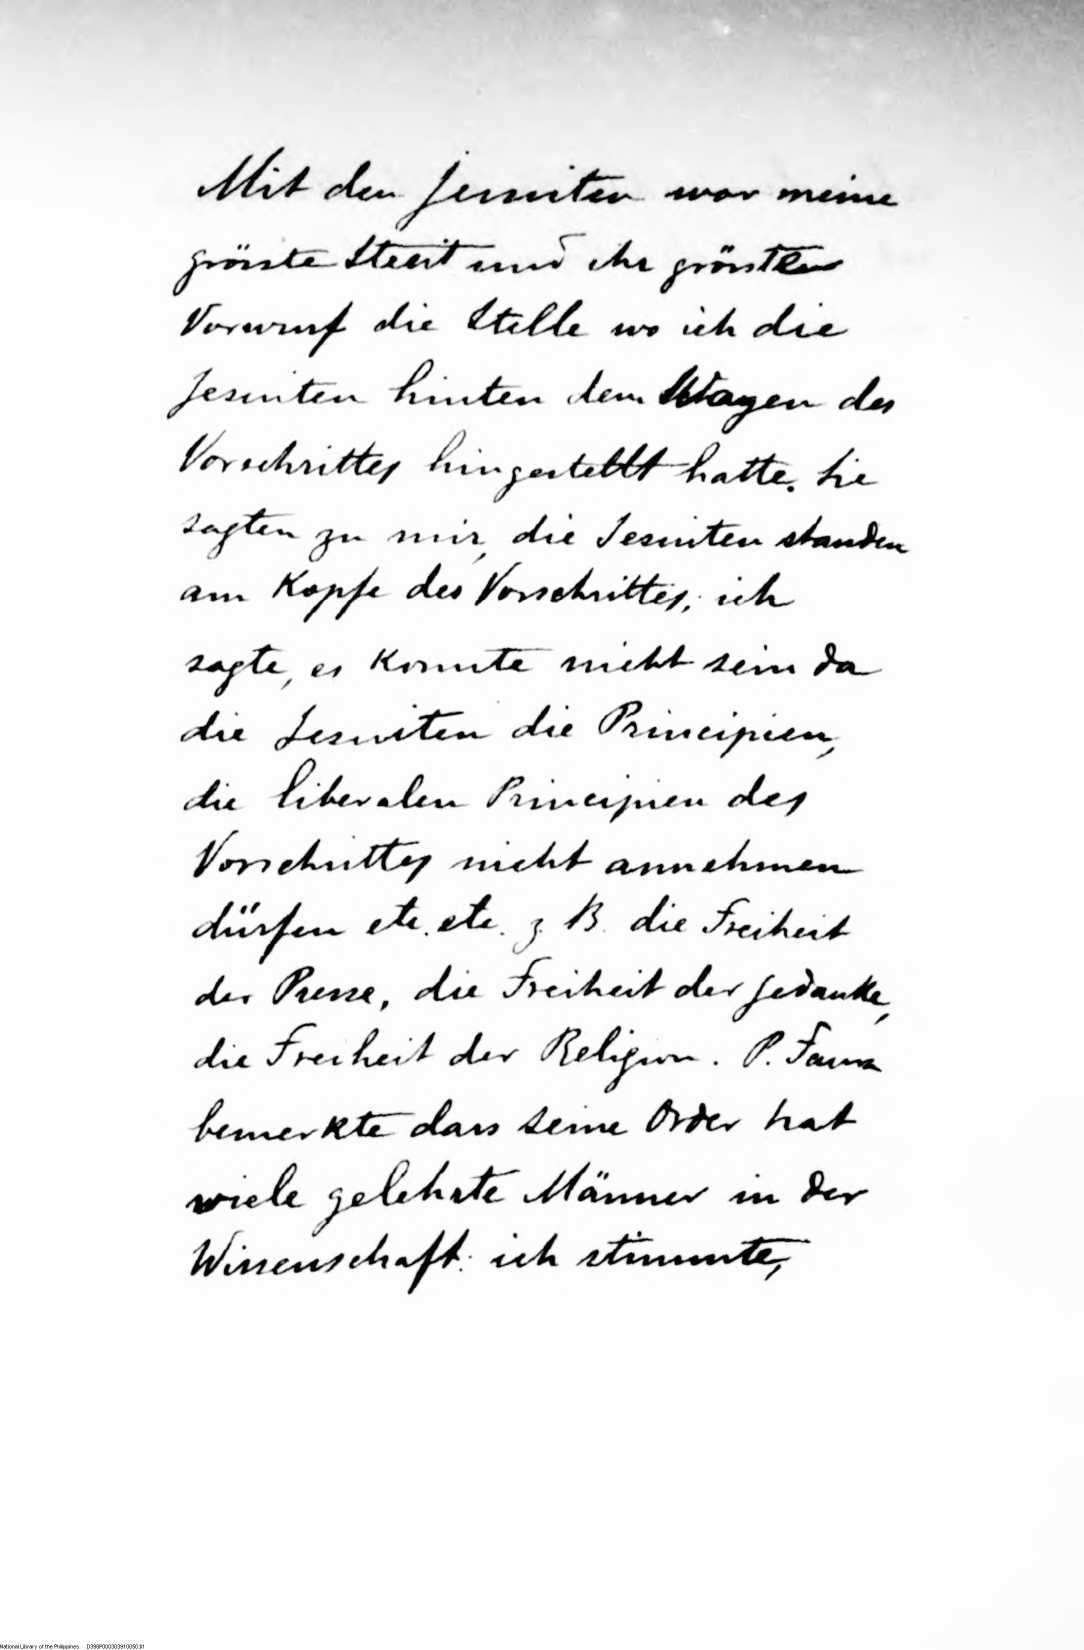 Mit den Jesuiten war meine
grösste Streit und ihr grössten
Vorwurf die Stelle wo ich die
Jesuiten hinten dem Wagen des
Vorschrittes hingestellt hatte. Sie
sagten zu mir, die Jesuiten standen
am Kopfe des Vorschrittes; ich
sagte, es konnte nicht sein da
die Jesuiten die Principien,
die liberalen Principien des
Vorschrittes nicht annehmen
dürfen etc. etc. z B. die Freiheit
der Presse, die Freiheit der Gedanke,
die Freiheit der Religion. P. Faura
bemerkte dass seine Order hat
wiele gelehrte Männer in der
Wissenschaft: ich stimmte,
National Library of the Philippines